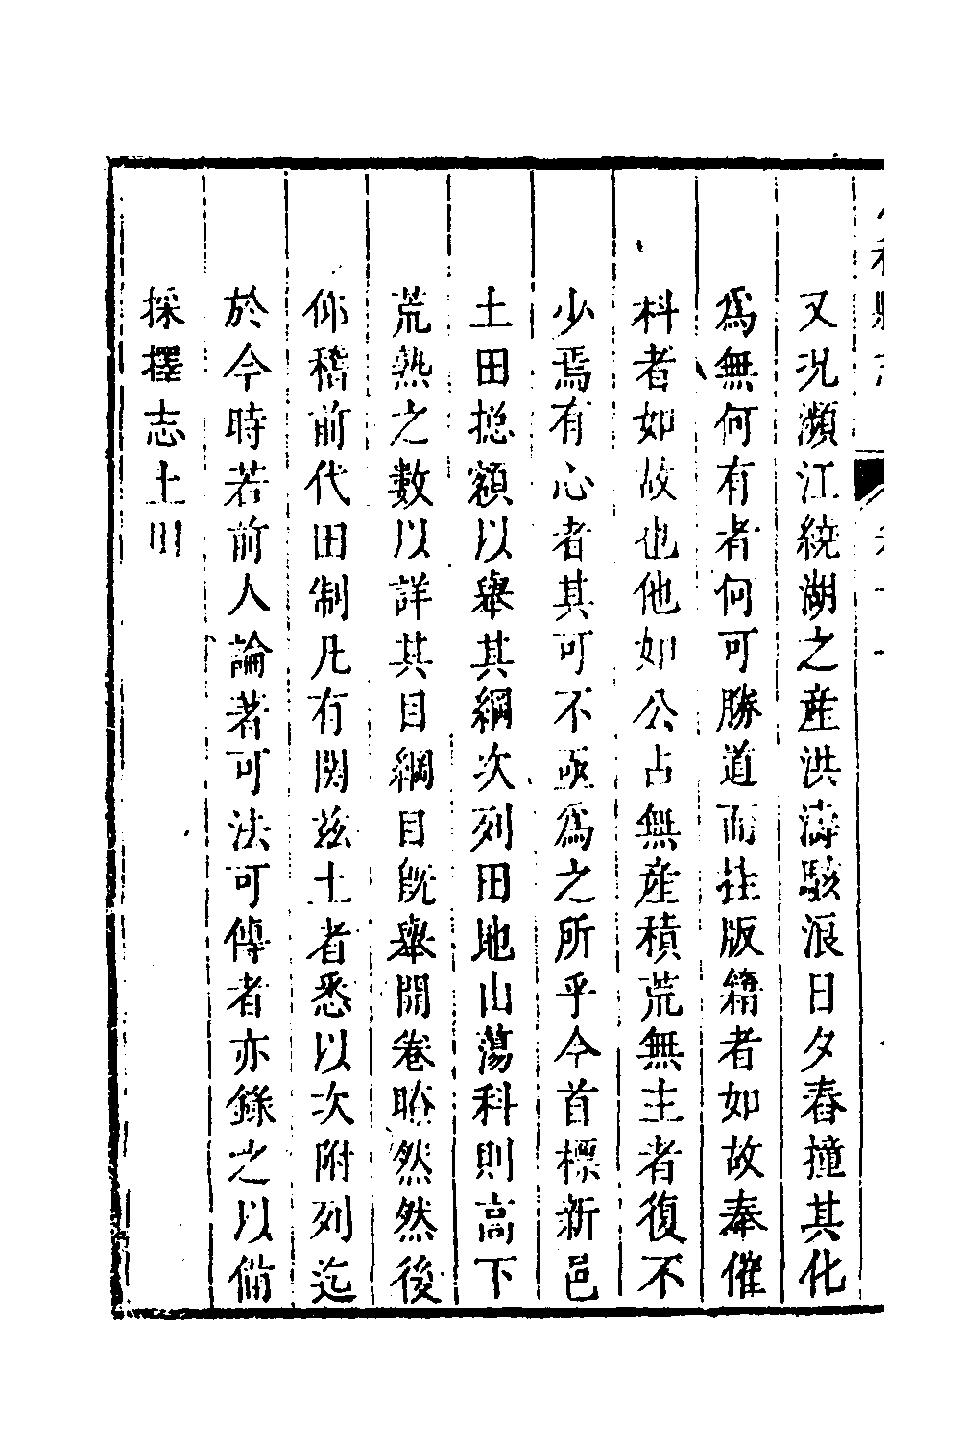 又況瀕江繞湖之産洪濤駭浪日夕舂撞其化
爲無何有者何可勝道而挂版籍者如故奉催
科者如故也他如公占無産積荒無主者復不
少焉有心者其可不亟爲之所乎今首標新邑
土田摠額以舉其綱次列田地山蕩科則高下
荒熟之數以詳其目綱目旣舉開卷瞭然然後
仰稽前代田制凡有関玆土者悉以次附列迄
於今時若前人論著可法可傳者亦錄之以俻
採擇志土田